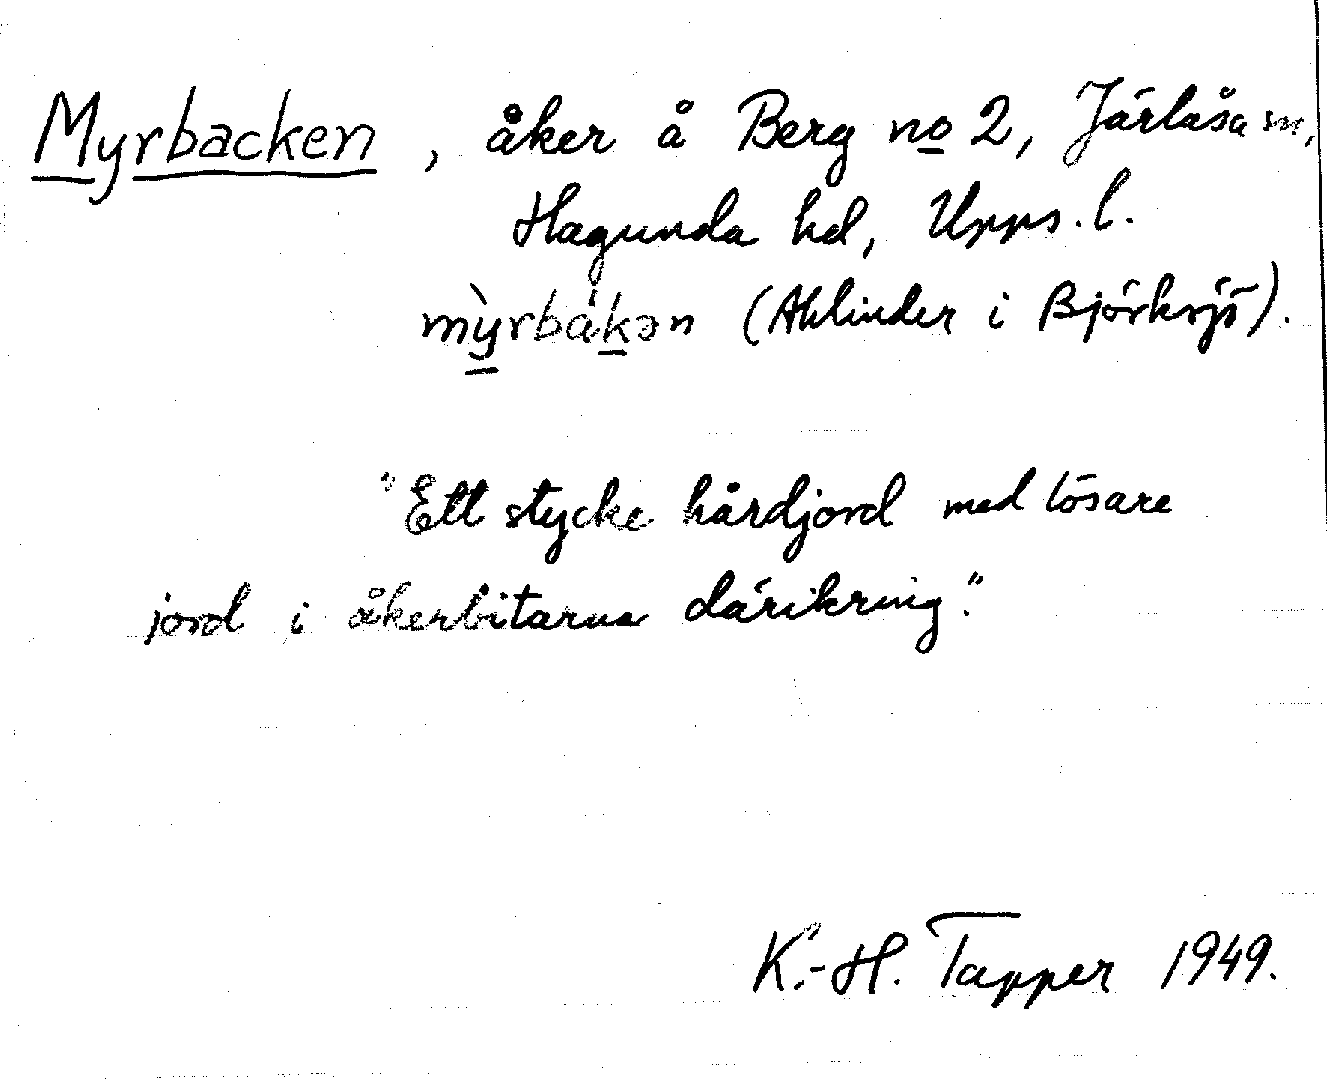 Myrbacken, åker å Berg no 2, Järlåsa sn,
Hagunda hd, Upps. l.
mỳrbákən (Ahlinder i Björksjö).
"Ett stycke hårdjord med lösare
jord i åkerbitarna därikring."
K.-H. Tapper 1949.